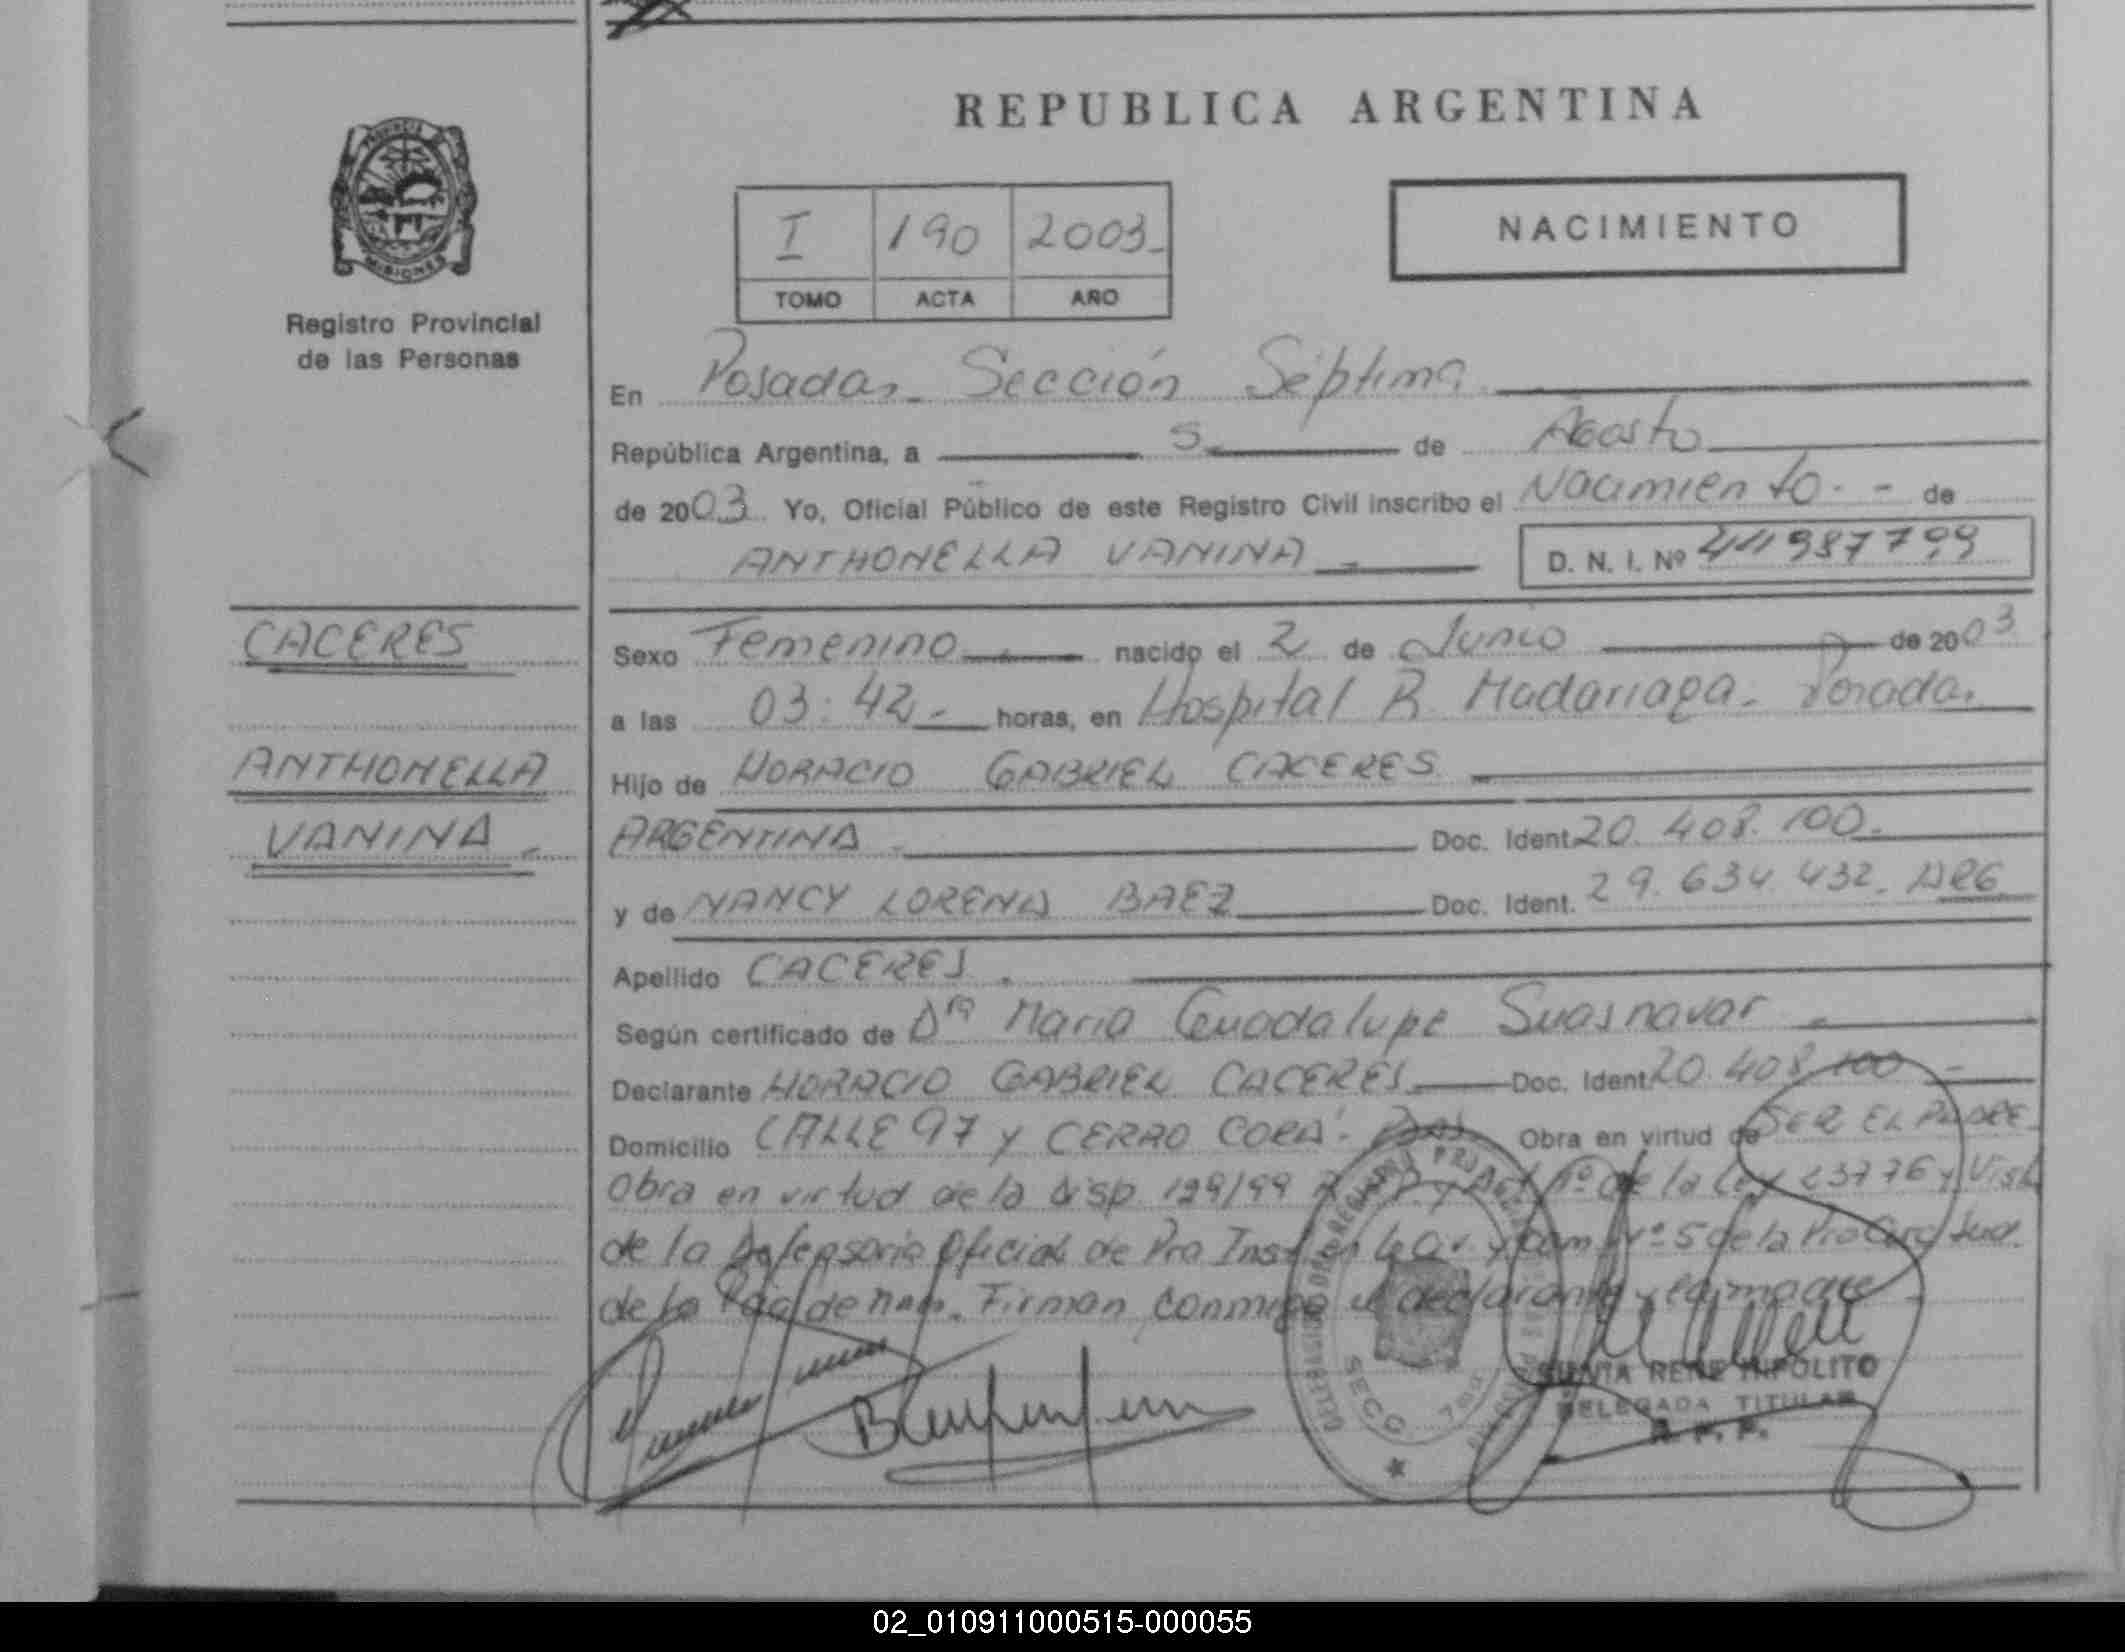 REPUBLICA ARGENTINA
PROVINCIA
MISIONES
Registro Provincial
de las Personas
I 190 2003
TOMO ACTA AÑO
NACIMIENTO
En Posadas Sección Séptima
República Argentina, a 5 de Agosto
de 2003 Yo, Oficial Público de este Registro Civil inscribo el Nacimiento de
ANTHONELLA VANINA
D. N. I. Nº 44987799
CACERES
ANTHONELLA
VANINA
Sexo Femenino nacido el 2 de Junio de 2003
a las 03:42 horas, en Hospital R. Madariaga. Posadas
Hijo de HORACIO GABRIEL CACERES
ARGENTINA Doc. Ident. 20.408.100.
y de NANCY LORENA BAEZ Doc. Ident. 29.634.432. ARG
Apellido CACERES
Según certificado de Dra Maria Guadalupe Suasnavar
Declarante HORACIO GABRIEL CACERES Doc. Ident. 20.408.100
Domicilio CALLE 97 y CERRO CORA Obra en virtud de SER EL PADRE
Obra en virtud de la Disp. 129/99 y Art 1º de la Ley 23776 y Vista
de la Defensoria Oficial de Pra Inst en lo Civ. y Com. Nº 5 de la Pra Circ Jud.
de la Pcia de Mnes. Firman conmigo el declarante y la madre
SECC 7ma
RENE HIPOLITO
DELEGADA TITULAR
R. P. P.
02_010911000515-000055